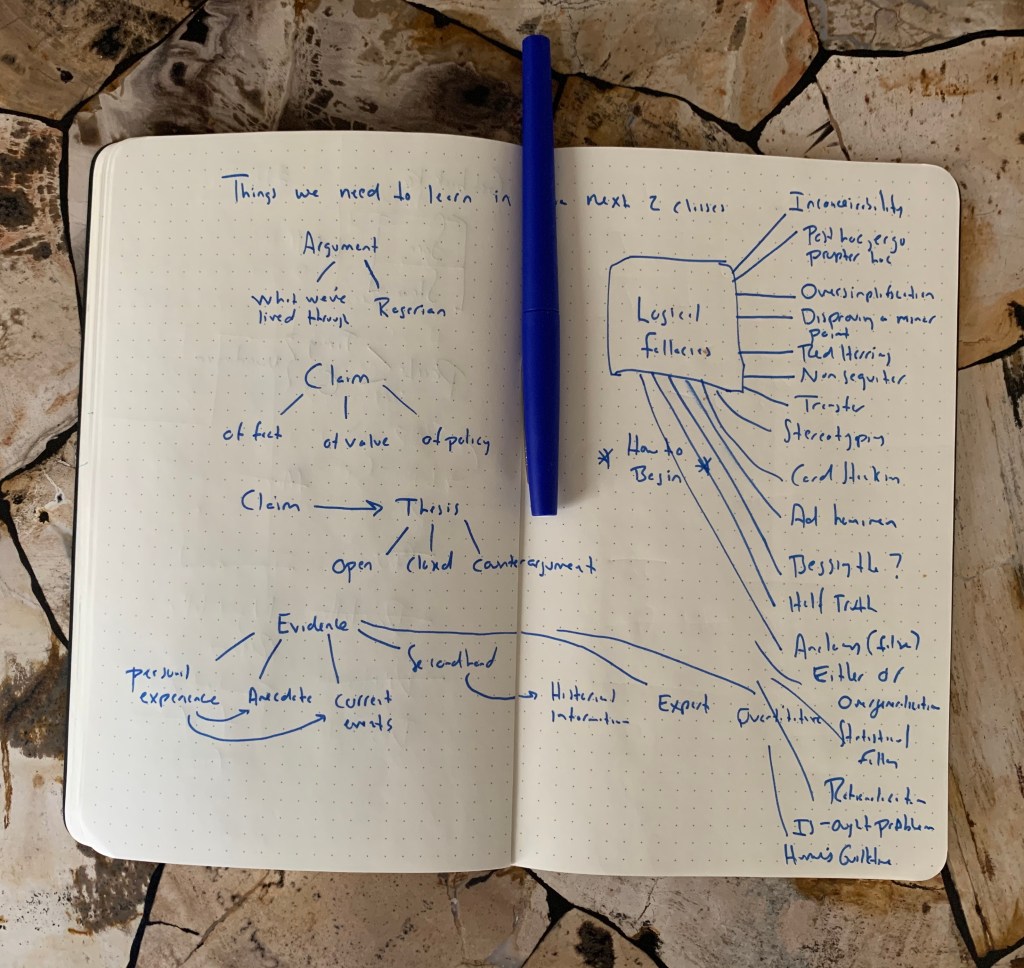 Things we need to learn in next 2 classes
Argument
What we've
lived through
Rogerian
Claim
of fact
of value
of policy
Claim → Thisis
open
closed
counterargument
Evidence
personal
experience
Anecdote
current
events
Secondhand
Historical
Information
Expert
Quantitative
Logical
fallacies
* How to
Begin *
Post hoc, ergo
propter hoc
Oversimplification
Disproving a minor
point
Red Herring
Non sequiter
Transfer
Stereotyping
Card Stackin
Ad hominen
Begging the ?
Half Truth
Analogy (false)
Either or
Overgeneralization
Statistical
Is-ought problem
Hume's Guillotine